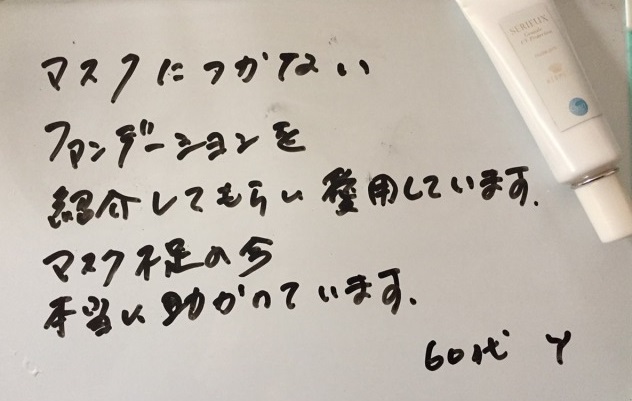 マスクにつかない
ファンデーションを
紹介してもらい愛用しています.
マスク不足の今
本当に助かっています.
60代 Y
SERIFLUX